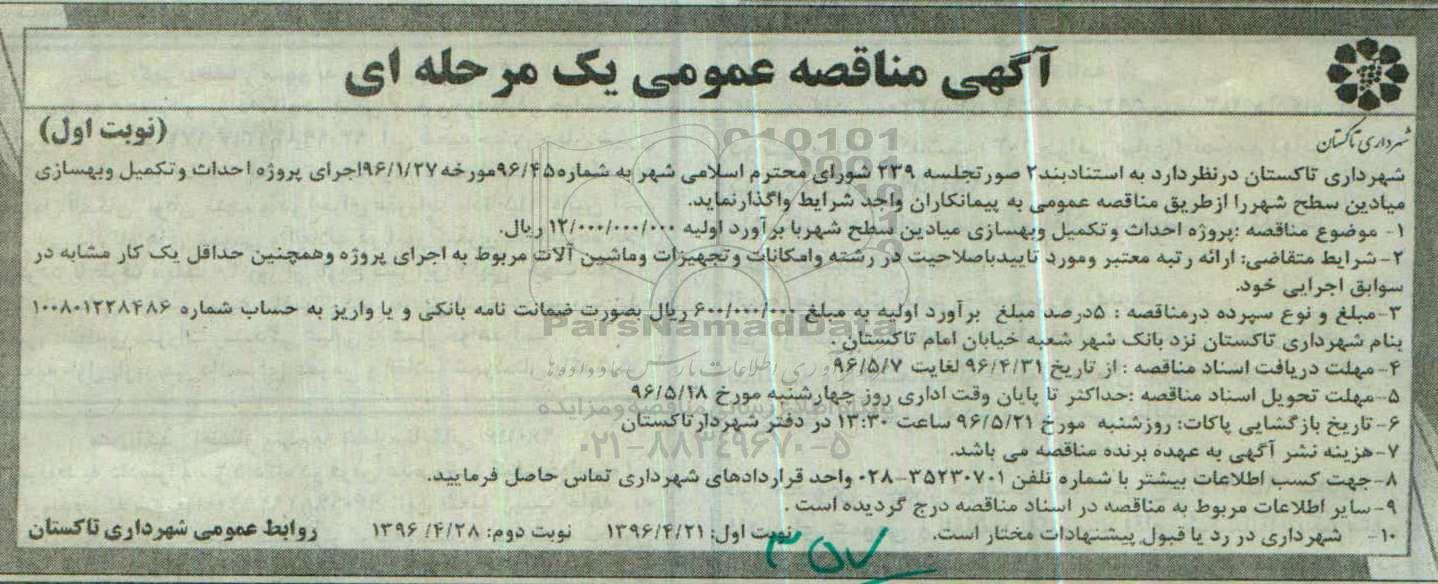 آگهی مناقصه عمومی یک مرحله ای
شهرداری تاکستان
(نوبت اول)
شهرداری تاکستان درنظردارد به استنادبند۲ صورتجلسه ۲۳۹ شورای محترم اسلامی شهر به شماره۹۶/۴۵مورخه۹۶/۱/۲۷اجرای پروژه احداث وتکمیل وبهسازی
میادین سطح شهررا ازطریق مناقصه عمومی به پیمانکاران واجد شرایط واگذارنماید.
۱- موضوع مناقصه :پروژه احداث وتکمیل وبهسازی میادین سطح شهربا برآورد اولیه ۱۲/۰۰۰/۰۰۰/۰۰۰ ریال.
۲-شرایط متقاضی: ارائه رتبه معتبر ومورد تاییدباصلاحیت در رشته وامکانات وتجهیزات وماشین آلات مربوط به اجرای پروژه وهمچنین حداقل یک کار مشابه در
سوابق اجرایی خود.
۳-مبلغ و نوع سپرده درمناقصه : ۵درصد مبلغ برآورد اولیه به مبلغ ۶۰۰/۰۰۰/۰۰۰ ریال بصورت ضمانت نامه بانکی و یا واریز به حساب شماره ۱۰۰۸۰۱۲۲۸۴۸۶
بنام شهرداری تاکستان نزد بانک شهر شعبه خیابان امام تاکستان .
۴-مهلت دریافت اسناد مناقصه : از تاریخ ۹۶/۴/۳۱ لغایت ۹۶/۵/۷
۵-مهلت تحویل اسناد مناقصه :حداکثر تا پایان وقت اداری روز چهارشنبه مورخ ۹۶/۵/۱۸
۶-تاریخ بازگشایی پاکات: روزشنبه مورخ ۹۶/۵/۲۱ ساعت ۱۳:۳۰ در دفتر شهردارتاکستان
۷-هزینه نشر آگهی به عهده برنده مناقصه می باشد.
۸-جهت کسب اطلاعات بیشتر با شماره تلفن ۳۵۲۳۰۷۰۱-۰۲۸ واحد قراردادهای شهرداری تماس حاصل فرمایید.
۹-سایر اطلاعات مربوط به مناقصه در اسناد مناقصه درج گردیده است .
۱۰- شهرداری در رد یا قبول پیشنهادات مختار است. نوبت اول: ۱۳۹۶/۴/۲۱ نوبت دوم: ۱۳۹۶ /۴/۲۸ روابط عمومی شهرداری تاکستان
ParsNamadData
۰۲۱-۸۸۳۴۹۶۷۰-۵
۳۵۷